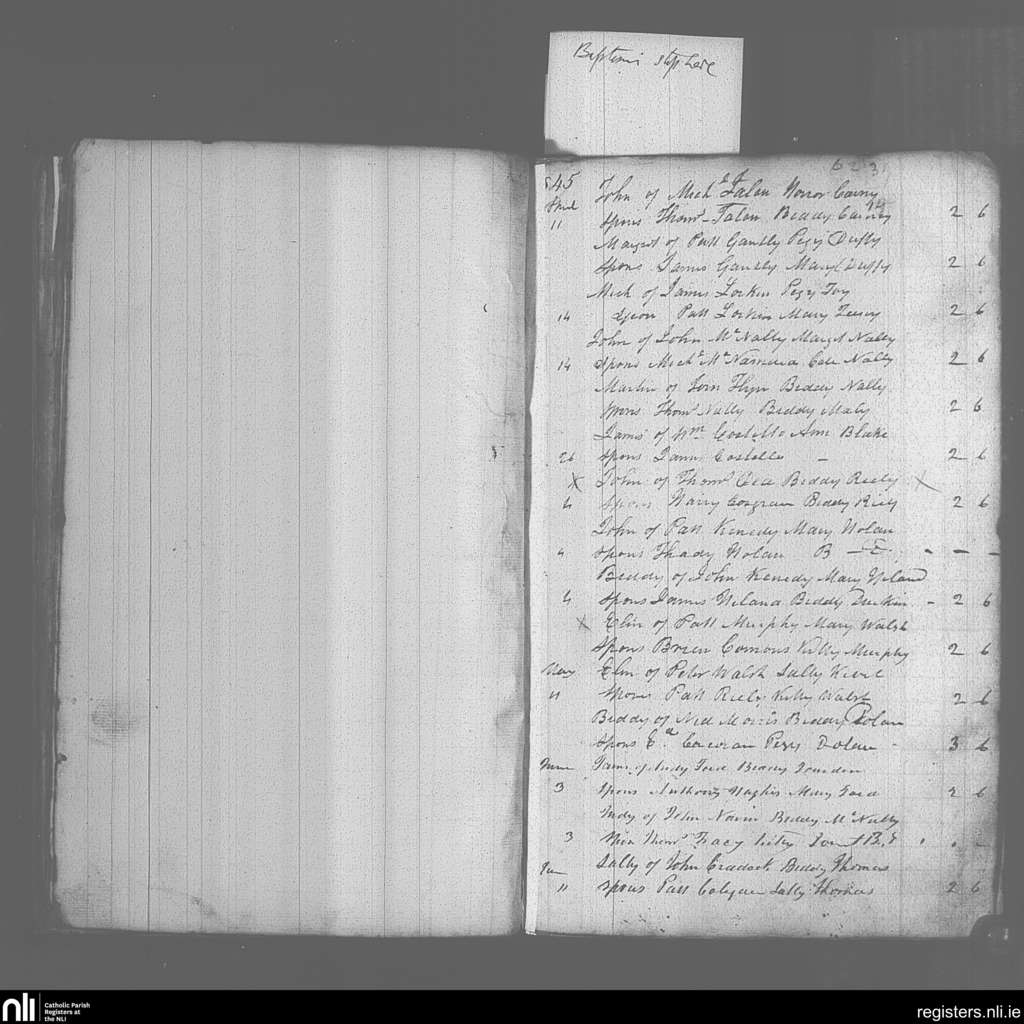 Baptisms stop here
623
845 John of Mich.l Talan Honor Carny
April
11 Spons Thom.s Talan Beddy Carny 2 6
Margret of Patt Gantly Pegy Duffy
Spons James Gantly Mary Duffy 2 6
Mich of James Lorken Pegy Foy
14 Patt Lorken Mary 2 6
John of John Mc Nally Marget Nally
14 Spons Mich.l Mc Namera Cate Nally 2 6
Martin of Tom Flyn Beddy Nally
Spons Thom.s Nally Beddy Maly 2 6
James of Wm Costello Ann Blake
26 Spons James Costello - 2 6
X John of Thom.s Beddy Reely X
4 Spons Harry Cosgrave Beddy Riely 2 6
John of Patt Kenedy Mary Nolan
4 Spons Thady Nolan B - - -
Beddy of John Kenedy Mary Niland
4 Spons James Niland Beddy Durkin - 2 6
X Elin of Patt Murphy Mary Walsh
Spons Brien Comons Kitty Murphy 2 6
May Elin of Peter Walsh Sally
11 Spons Patt Riely Kitty Walsh 2 6
Beddy of Ned Morris Beddy Dolan
Spons E.d Corcoran Pegy Dolan - 3 6
June James of Andy Ford Beddy
3 Spons Anthony Hughes Mary Ford 2 6
Andy of John Beddy Mc Nally
3 Thom.s Tracy
Jun Sally of John Craddock Beddy Thomas
11 Spons Patt Sally Thomas 2 6
nli
Catholic Parish
Registers at
the NLI
registers.nli.ie